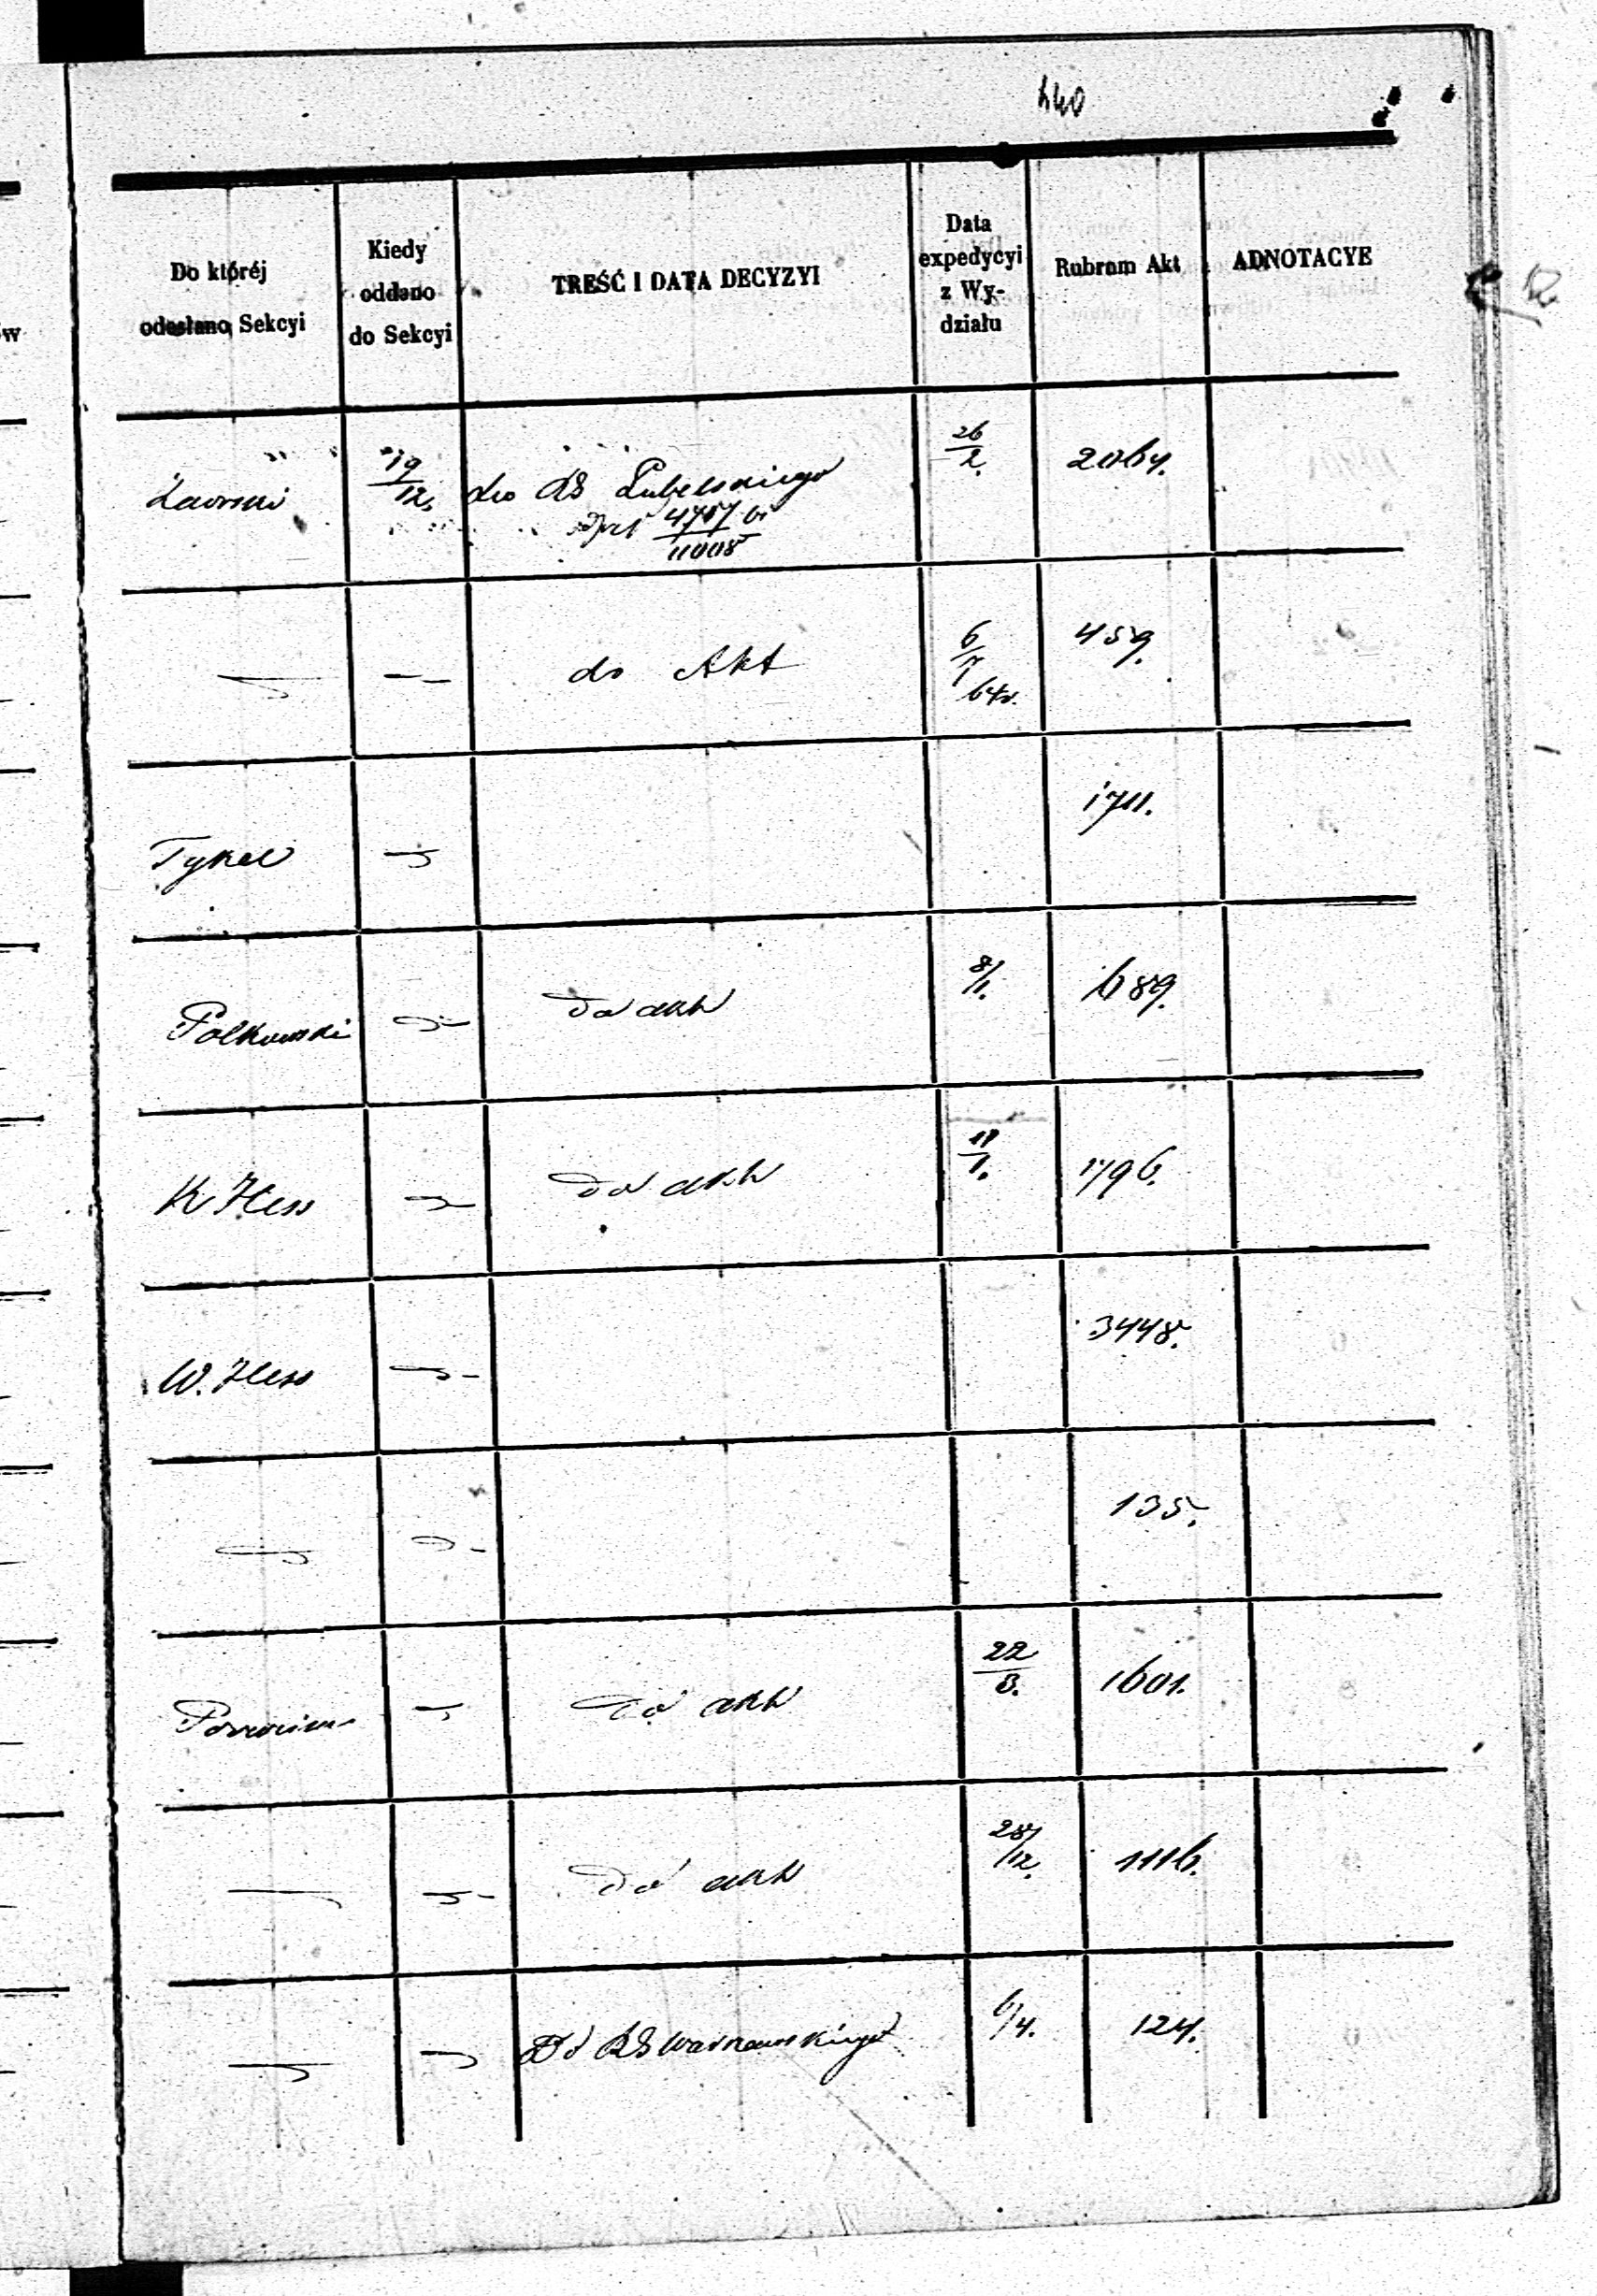 440
Do któréj odesłano Sekcyi
Kiedy oddano do Sekcyi
TREŚĆ I DATA DECYZYI
Data expedycyi z Wydziału
Rubrum Akt
ADNOTACYE
19/12. do RG Lubelskiego 26/2. 2064.
4757
11008
do Akt 6/7 64r. 459.
Tykel 1711.
Polkowski do akt 8/1. 689.
K Hess do akt 11/1. 1796.
W. Hess 3448.
135.
do akt 22/3. 1601.
do akt 28/12. 1116.
Do RG Warszawskiego 6/4. 124.